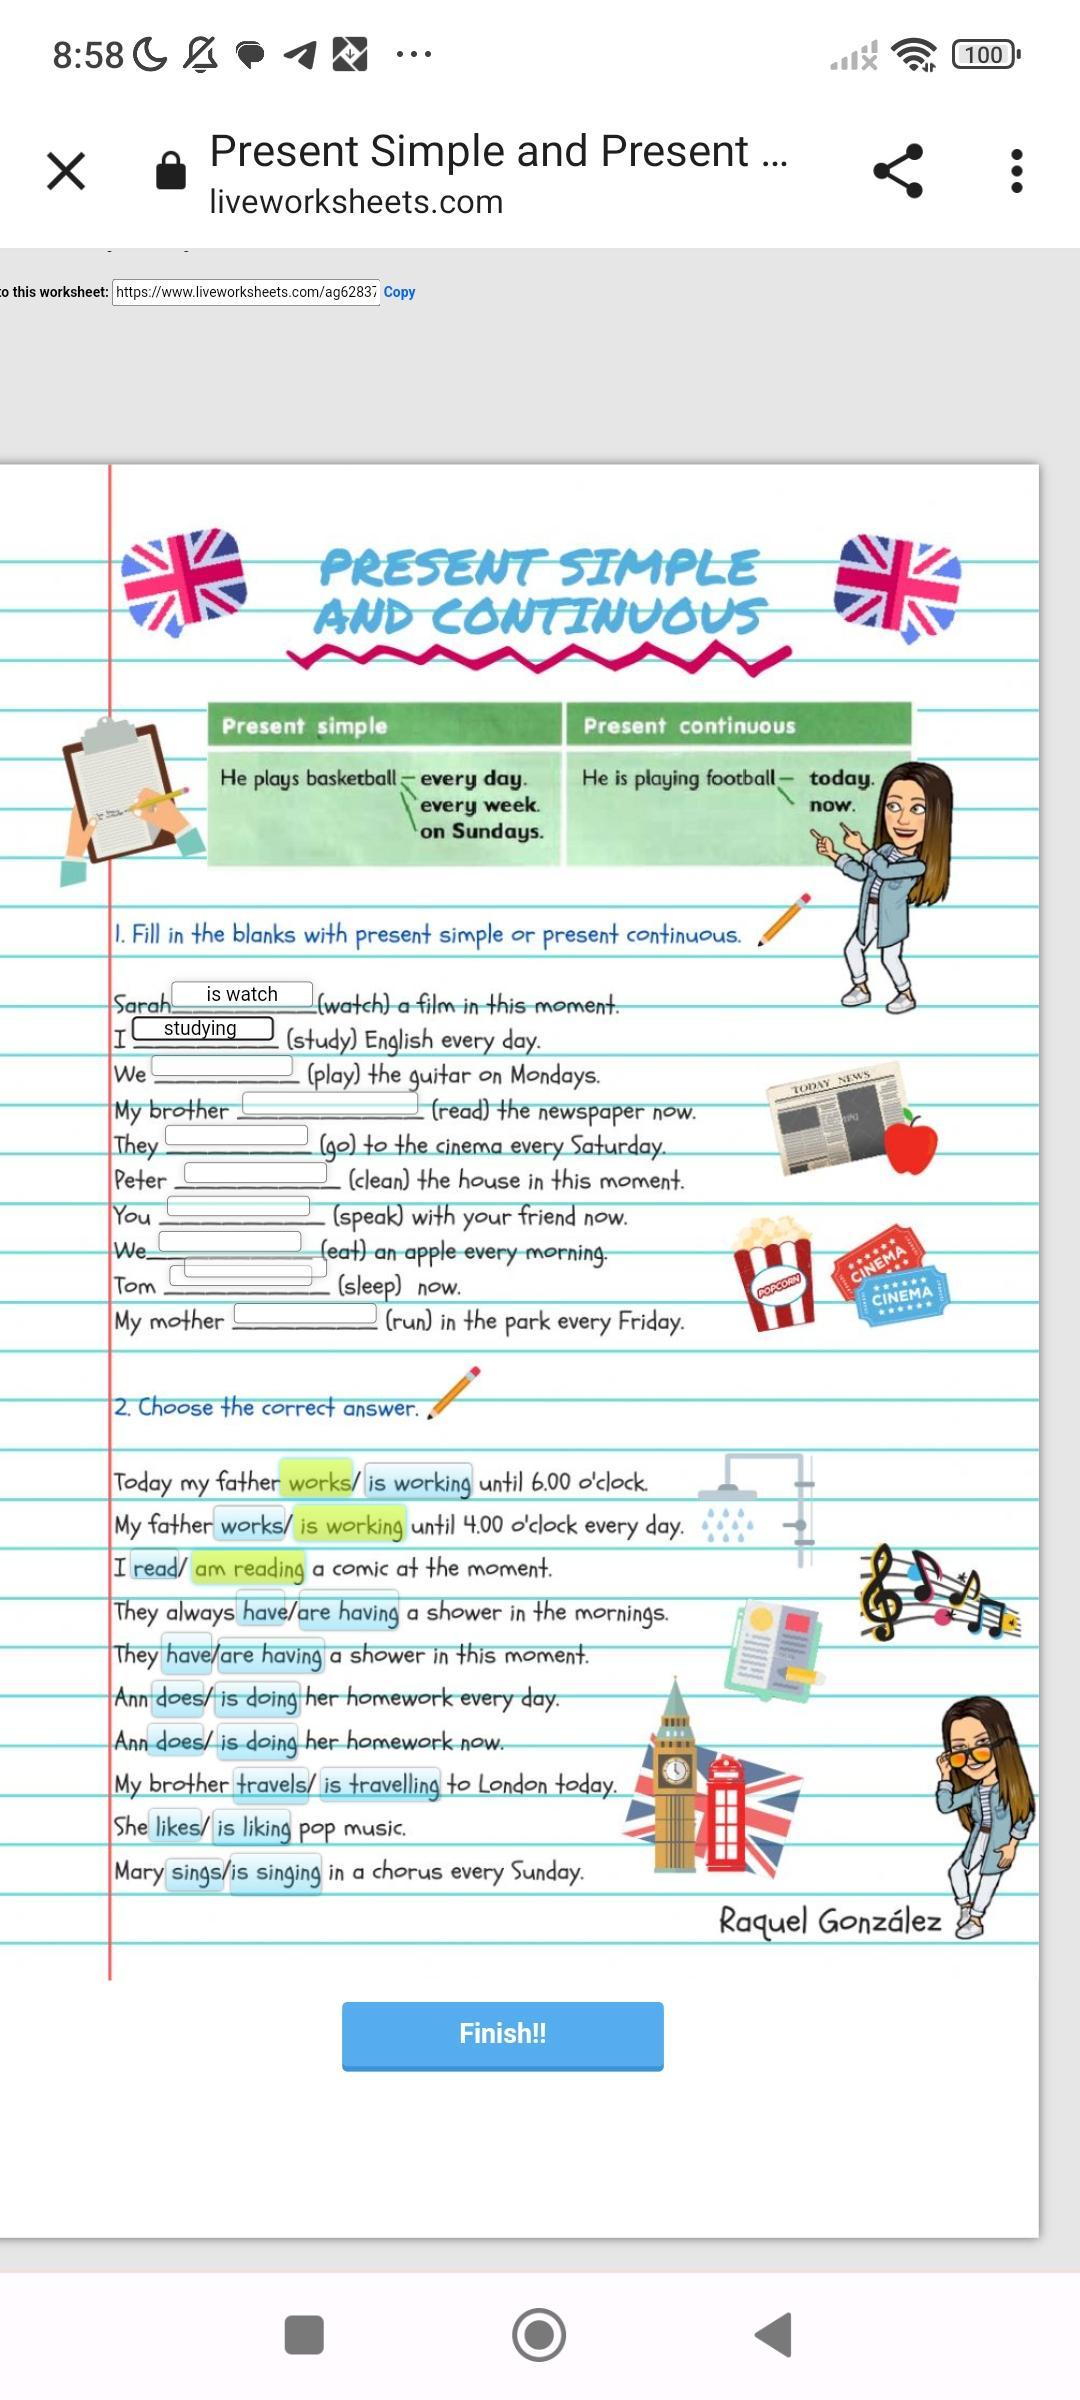 8:58
100
Present Simple and Present ...
liveworksheets.com
to this worksheet: https://www.liveworksheets.com/ag62837 Copy
PRESENT SIMPLE
AND CONTINUOUS
Present simple
Present continuous
He plays basketball – every day.
every week.
on Sundays.
He is playing football – today.
now.
1. Fill in the blanks with present simple or present continuous.
Sarah is watch (watch) a film in this moment.
I studying (study) English every day.
We ________ (play) the guitar on Mondays.
My brother ________ (read) the newspaper now.
They ________ (go) to the cinema every Saturday.
Peter ________ (clean) the house in this moment.
You ________ (speak) with your friend now.
We ________ (eat) an apple every morning.
Tom ________ (sleep) now.
My mother ________ (run) in the park every Friday.
TODAY NEWS
POPCORN
CINEMA
CINEMA
2. Choose the correct answer.
Today my father works/ is working until 6.00 o'clock.
My father works/ is working until 4.00 o'clock every day.
I read/ am reading a comic at the moment.
They always have/are having a shower in the mornings.
They have/are having a shower in this moment.
Ann does/ is doing her homework every day.
Ann does/ is doing her homework now.
My brother travels/ is travelling to London today.
She likes/ is liking pop music.
Mary sings/is singing in a chorus every Sunday.
Raquel González
Finish!!